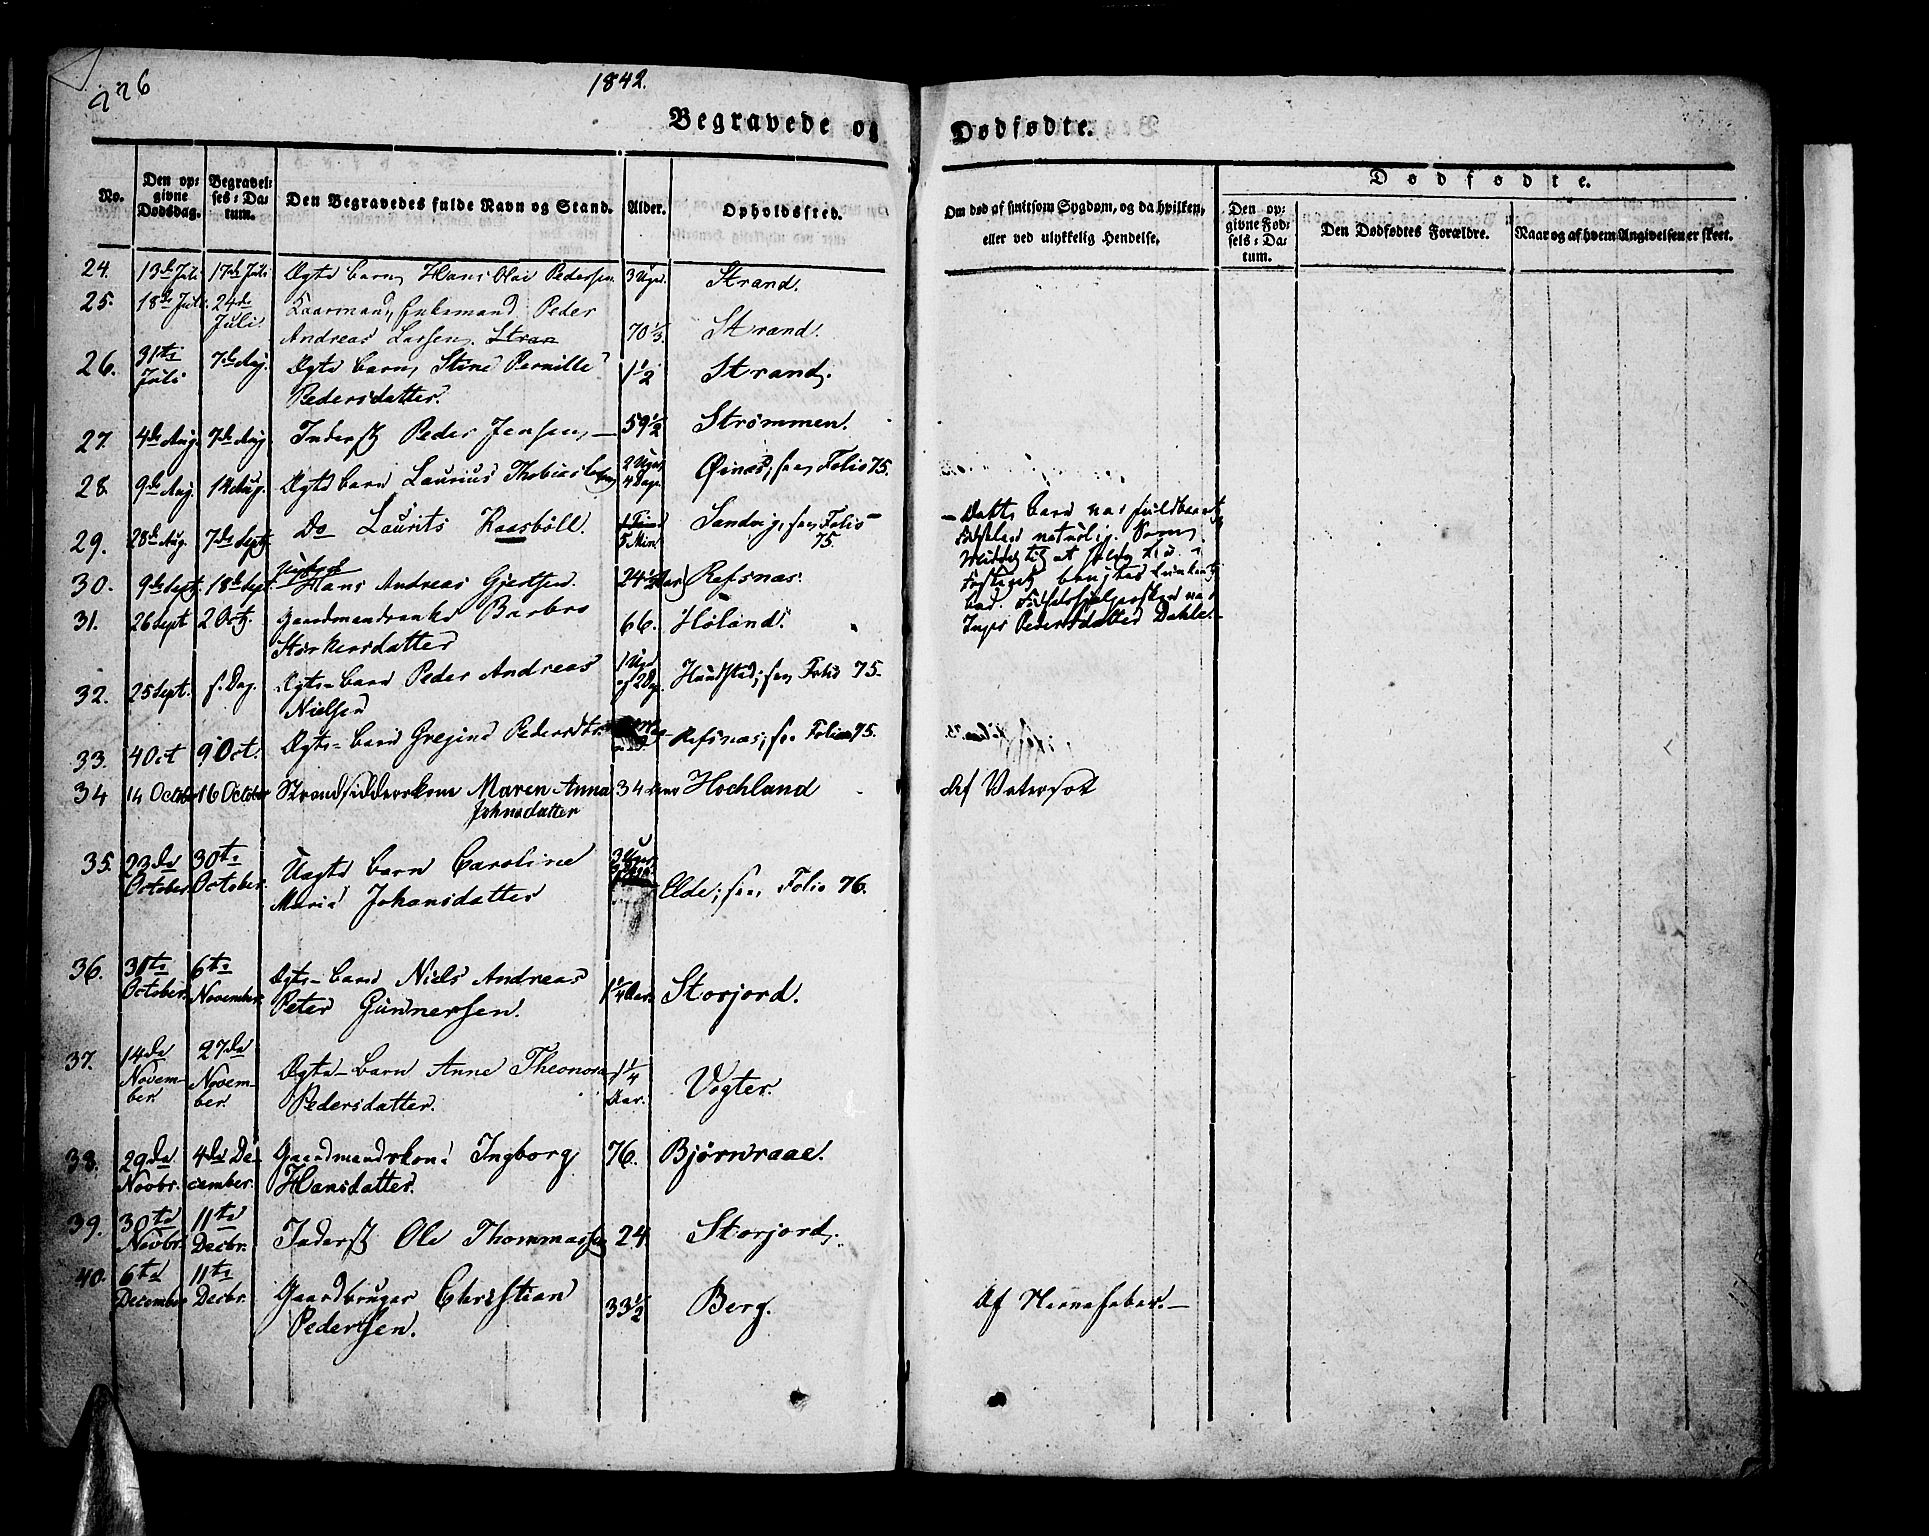 226
1842.
Begravede og Dødfødte.
No.
Den op-
givne
Dødsdag.
Begravel-
ses-Da-
tum.
Den Begravedes fulde Navn og Stand.
Alder.
Opholdssted.
Om død af smitsom Sygdom, og da hvilken,
eller ved ulykkelig Hendelse.
Dødfødte.
Den op-
givne Fød-
sels-Da-
tum.
Den Dødfødtes Forældre.
Naar og af hvem Angivelsen er skeet.
24. 13de Juli 17de Juli Ægte barn Hans Olai Pedersen. 3 Uger Strand.
25. 18de Juli 24de
Juli. Kaarmand, Enkemand Peder
Andreas Larsen. Stran 70 1/3 Strand.
26. 31te
Juli 7de Aug. Ægte barn Stine Pernille
Pedersdatter. 1 1/2 Strand.
27. 4de Aug. 7de Aug. Inderst Peder Jensen 59 1/2 Strømmen.
28. 9de Aug. 14 Aug. Ægte barn Laurius Thobias 2 Uger
4 Dage Øinæs, see Folio 75.
29. 28de Aug. 7de Septr. Do Laurits Kaasbøll. 5 Min. Sandvig, see Folio
75.
Dette barn var fuldbaaret
naturlig.
30. 9de Septr. 18de Sept. Hans Andreas Gjertsen. 24 1/2 Aar Refsnæs.
31. 26 Sept 2 Oct. Gaardmandsenke Barbro
Storkersdatter 66. Høland.
Inger Pedersdatter Dahle.
32. 25 Sept. s. Dag. Ægte-barn Peder Andreas
Nielsen 1 Uge
og 2 Dag. Haudsted; see Folio 75.
33. 4 Oct 9 Oct. Ægte-barn Grejine Pedersdtr. Refsnæs; see Folio 75.
34 14 October 16 October Strandsidderskone Maren Anna
Johnsdatter 34 Aar Hochland Af Vatersot
35. 23de
October 30te
October. Uægte barn Caroline
Marie Johansdatter 3 Uger Elde; see Folio 76.
36. 31te
October. 6te
November. Ægte-barn Niels Andreas
Peter Gunnersen. 1 1/4 Aar. Storjord.
37. 14de
Novem-
ber. 27de
Novem-
ber. Ægte-barn Anne Theonora
Pedersdatter. 1 1/4
Aar. Vogter.
38. 29de
Novbr. 4de De-
cember. Gaardmandskone Ingborg
Hansdatter. 76. Bjørnraae.
39. 30te
Novbr. 11te
Decbr. Inderst Ole Thommassen 24 Storjord.
40. 6te
December 11te
Decbr. Gaardbruger Christian
Pedersen. 33 1/2 Berg. Af Nervefeber.